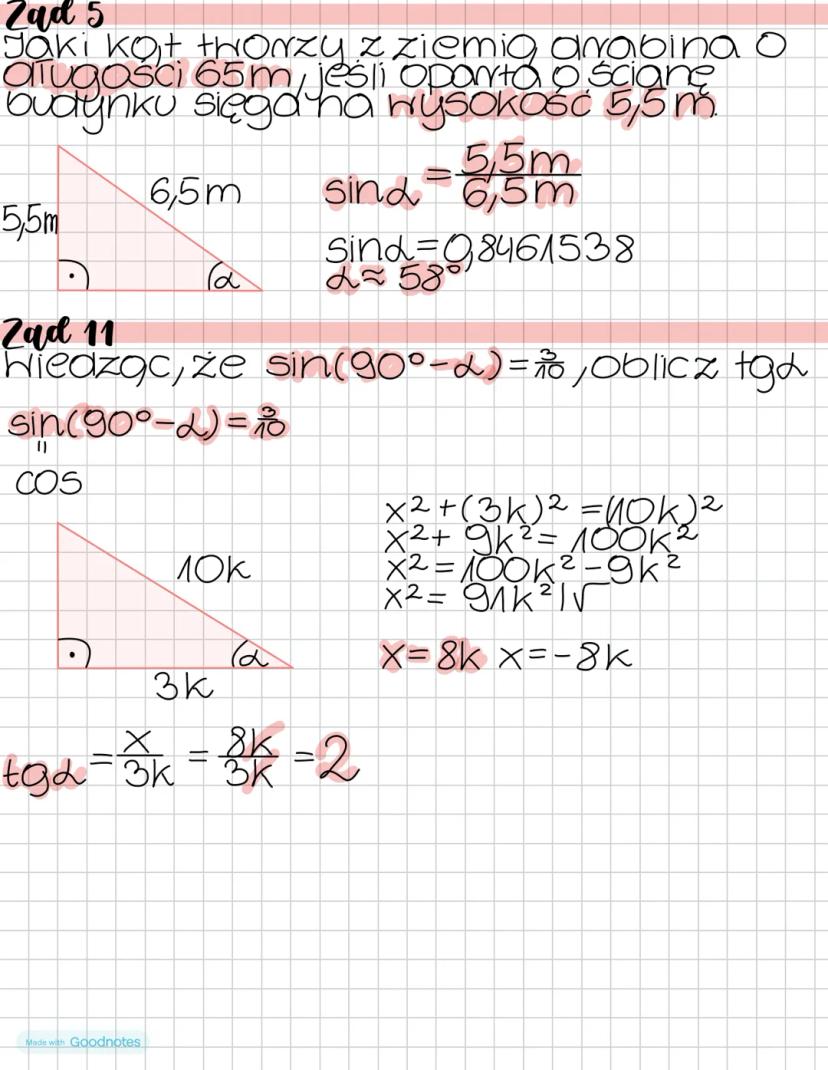 Zad 5
Jaki kąt tworzy z ziemią drabina o
długości 65m, jeśli oparta o ścianę
budynku sięga na wysokość 5,5 m.
6,5m
5,5m
α
sinα = 5,5m/6,5m
sinα=0,8461538
α≈ 58°
Zad 11
Wiedząc, że sin(90°-α)=3/10, oblicz tgα
sin(90°-α)=3/10
=
cos
10k
α
3k
x²+(3k)²=(10k)²
x²+ 9k²= 100k²
x²=100k²-9k²
x²= 91k²|√
x=8k x=-8k
tgα = x/3k = 8k/3k = 2
Made with Goodnotes